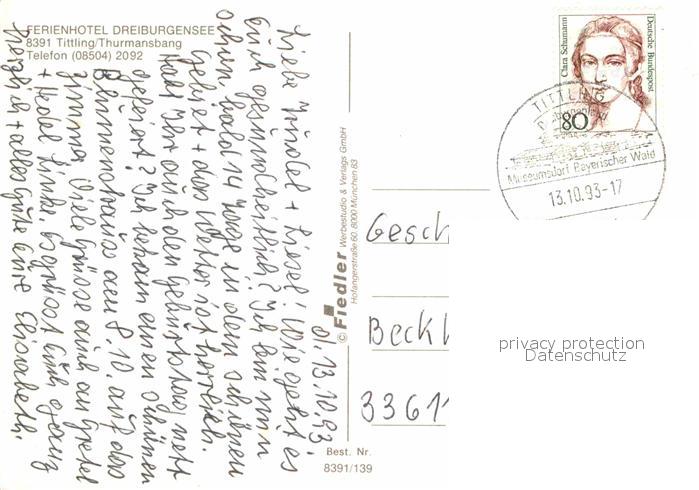 FERIENHOTEL DREIBURGENSEE
8391 Tittling/Thurmansbang
Telefon (08504) 2092
d. 13.10.93
Liebe Trudel + Liesel! Wie geht es
Euch gesundheitlich? Ich bin nun
schon bald 14 Tage in dem schönen
Gebiet + das Wetter ist herrlich.
Habt Ihr auch den Geburtstag nett
gefeiert? Ich bekam einen schönen
Blumenstrauss am 8.10. auf das
Zimmer. Viele Grüsse auch an Gretel
+ Hedel Es grüsst Euch ganz
herzlich + alles Gute Eure Elisabeth.
© Fiedler Werbestudio & Verlags GmbH
Hofangerstraße 60. 8000 München 83
Best. Nr.
8391/139
Clara Schumann
Deutsche Bundespost
80
TITTLING
Museumsdorf Bayerischer Wald
13.10.93-17
Gesch
Beckh
33611
privacy protection
Datenschutz